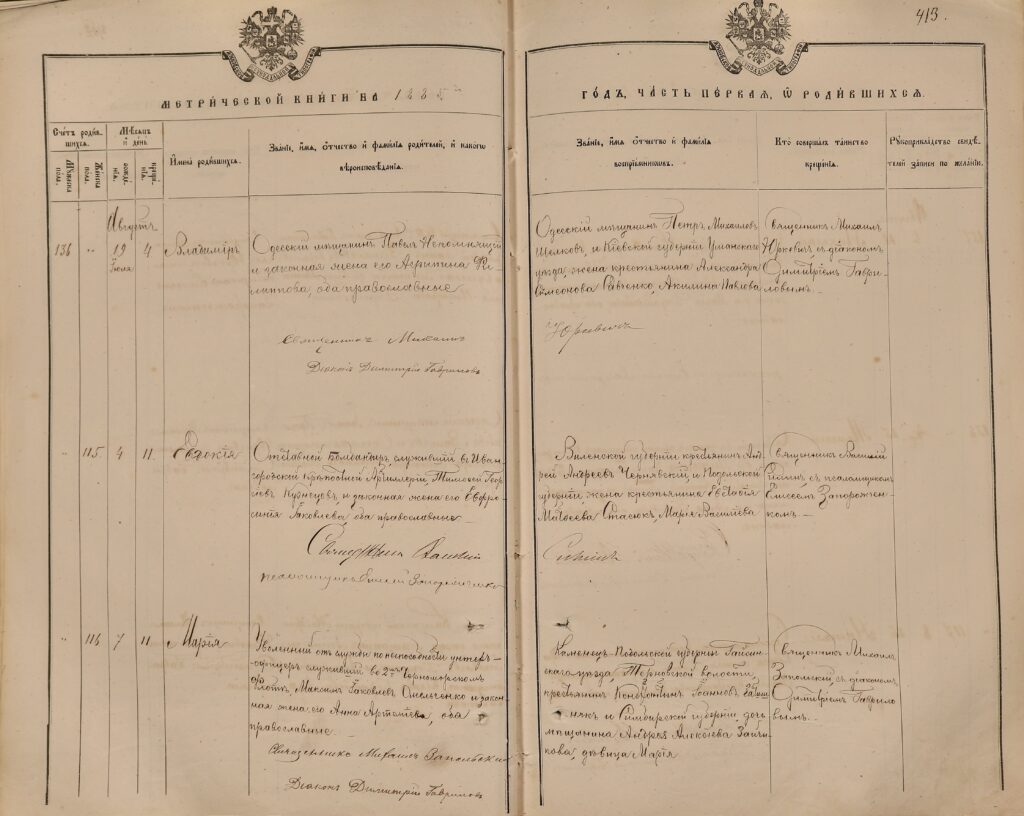 413.
МЕТРИЧЕСКОЙ КНИГИ НА 1885
ГОДЪ, ЧАСТЬ ПЕРВАЯ, Ѡ РОДИВШИХСЯ.
Счетъ родив-
шихся.
Мужеска пола.
Женска пола.
Мѣсяцъ
и день
рожде-
нія.
креще-
нія.
Имена родившихся.
Званіе, имя, отчество и фамилія родителей, и какого
вѣроисповѣданія.
Званіе, имя, отчество и фамилія
воспріемниковъ.
Кто совершалъ таинство
крещенія.
Рукоприкладство свидѣ-
телей записи по желанію.
Августъ
136 " 19 Іюля 4 Владиміръ
Одесскій мѣщанинъ Павелъ Непомнящій
и законная жена его Агрипина Фи-
липпова, оба православные
Священникъ Михаилъ
Діаконъ Димитрій Гавриловъ
Одесскій мѣщанинъ Петръ Михаиловъ
Шелковъ, и Кіевской губерніи Уманскаго
уѣзда, жена крестьянина Александра
Симеонова Савченко, Акилина Павлова
Юрковичъ
Священникъ Михаилъ
Юрковичъ съ діакономъ
Димитріемъ Гаври-
ловымъ.
" 115 4 11 Евдокія
Отставной Бомбандиръ, служившій въ Иван-
городской Крѣпостной Артиллеріи, Тимофей Геор-
гіевъ Кузнецовъ, и законная жена его Евфро-
синія Яковлева, оба православные
Священникъ Василій
псаломщикъ Елисей Запорожченко
Виленской губерніи крестьянинъ Анд-
рей Андреевъ Чернявскій, и Подольской
губерніи жена крестьянина Евстафія
Матѳеева Стасюкъ, Марія Васильева
Священникъ Василій
съ псаломщикомъ
Елисеемъ Запорожчен-
комъ.
" 116 7 11 Марія
Уволенный отъ службы по неспособности унтеръ-
офицеръ служившій во 2мъ Черноморскомъ
Флотѣ, Максимъ Іаковлевъ Омельченко и закон-
ная жена его Анна Артемьева, оба
православные
Священникъ Михаилъ Запольскій
Діаконъ Димитрій Гавриловъ
Каменецъ-Подольской губерніи Гайсин-
скаго уѣзда, Терновской волости,
крестьянинъ Константинъ Іоанновъ
и Симбирской губерніи дочь
мѣщанина Андрея Алексѣева Зайчи-
кова, дѣвица Марія
Священникъ Михаилъ
Запольскій, съ діакономъ
Димитріемъ Гаврило-
вымъ.